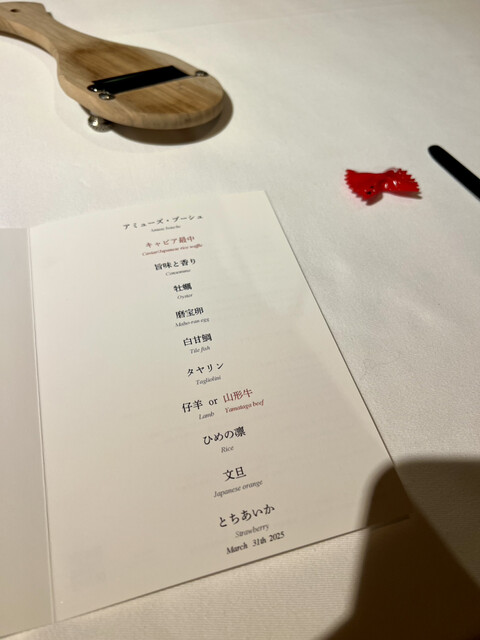 アミューズ・ブーシュ
キャビア最中
Caviar/Japanese rice waffle
旨味と香り
Consomme
牡蠣
Oyster
磨宝卵
Maho-ran egg
白甘鯛
Tile fish
タヤリン
仔羊 or 山形牛
Lamb Yamataga beef
ひめの凛
Rice
文旦
Japanese orange
とちあいか
Strawberry
March 31th 2025